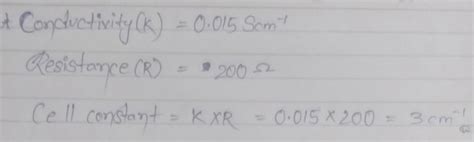 A Conductivity (K) = 0.015 Scm⁻¹
Resistance (R) = 200 Ω
Cell constant = K×R = 0.015 × 200 = 3 cm⁻¹